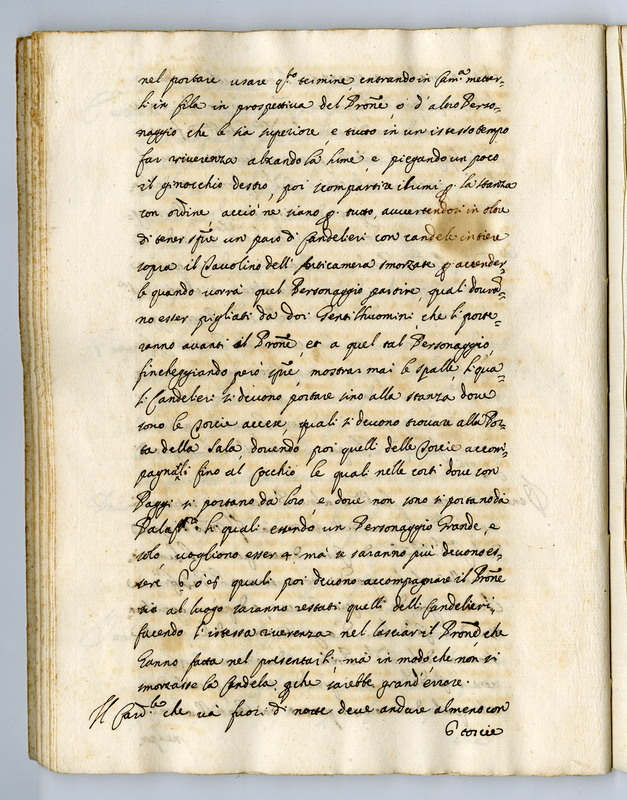 nel portare usare q.to termine, entrando in Cam.a metter-
si in fila in prospettiva del Prõne, ò d'altro Perso-
naggio che le sia superiore, e tutto in un istesso tempo
far riverenza alzando la lume, e piegando un poco
il ginocchio destro, poi scompartire i lumi p. la stanza
con ordine acciò ne siano p. tutto, avvertendosi in oltre
di tener spre un paro di Candelieri con candele intiere
sopra il Tavolino dell'Anticamera smorzate p. accender-
le quando vorrà quel Personaggio partire, quali dovrã-
no esser pigliati da doi Gentilhuomini, che li porte-
ranno avanti il Prõne, et a quel tal Personaggio,
fincheggiando però spre mostrar mai le spalle, li qua-
li Candelieri si devono portare sino alla stanza dove
sono le Torcie accese, quali si devono trovare alla Por-
ta della Sala, dovendo poi quelli delle Torcie accom-
pagnarli fino al Cocchio le quali nelle corti dove son
Paggi si portano da loro, e dove non sono si portano da
li quali essendo un Personaggio Grande, e
solo vogliono esser 4 mà se saranno più devono es-
sere 6, ò 8, quali poi devono accompagnare il Prõne
sio al luogo saranno restati quelli delli Candelieri,
facendo l'istessa riverenza nel lasciar il Prõne, che
hanno fatta nel presentarli, mà in modo che non si
smorzasse la Candela, che sarebbe grand'errore.
Il Card.le che và fuori di notte deve andare almeno con
6 torcie